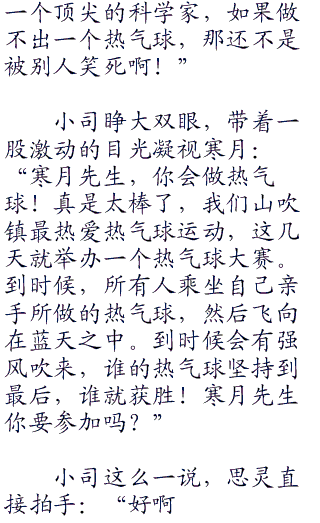 一个顶尖的科学家，如果做
不出一个热气球，那还不是
被别人笑死啊！”
小司睁大双眼，带着一
股激动的目光凝视寒月：
“寒月先生，你会做热气
球！真是太棒了，我们山吹
镇最热爱热气球运动，这几
天就举办一个热气球大赛。
到时候，所有人乘坐自己亲
手所做的热气球，然后飞向
在蓝天之中。到时候会有强
风吹来，谁的热气球坚持到
最后，谁就获胜！寒月先生
你要参加吗？”
小司这么一说，思灵直
接拍手：“好啊